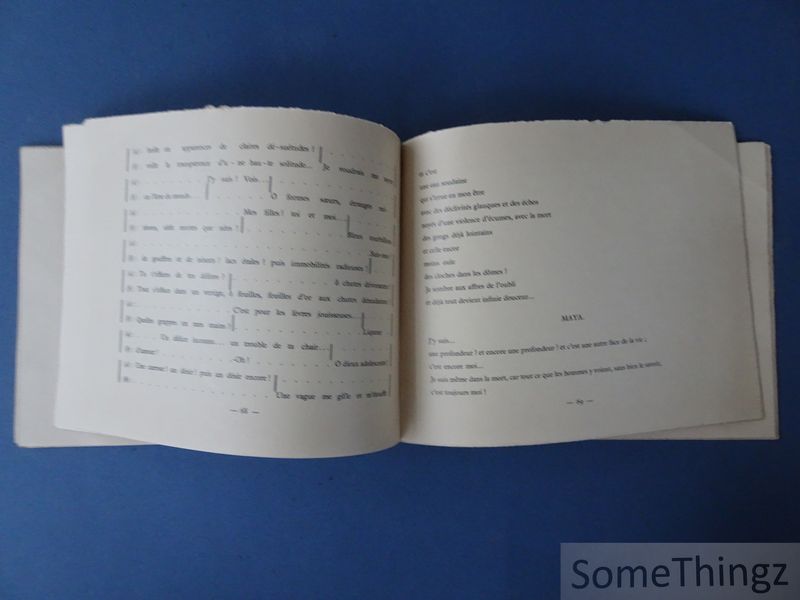 miré en apparences de claires dé-suétudes !
voilà la transparence d'u-ne hau-te solitude... Je voudrais me
J'y suis ! Vois...
en l'âme du monde. O formes sœurs, étranges
Mes filles ! toi et moi...
sinon, utile encore que noirs ! Bleus tourbillons
Suis-moi
de gouffres et de néants ! lacs étales ! puis immobilités radieuses !
Tu t'effares de tes délires ! ô chutes
Tout s'élance dans un vertige, ô feuilles, feuilles d'or aux chutes
C'est pour les lèvres jouisseuses...
Quelles grappes en mes mains ! Liqueur
Un délire inconnu... un trouble de ta chair...
-Oh ! O dieux adolescents !
Une caresse ! un désir ! puis un désir encore !
Une vague me gifle et m'étouffe
— 88 —
et c'est
une eau soudaine
qui s'érue en mon être
avec des déclivités glauques et des échos
noyés d'une violence d'écumes, avec la mort
des gongs déjà lointains
et celle encor
moins
des cloches dans les dômes !
Je sombre aux affres de l'oubli
et déjà tout devient infinie douceur...
MAYA.
J'y suis...
une profondeur ! et encore une profondeur ! et c'est une autre face de la vie ;
c'est encore moi...
Je suis même dans la mort, car tout ce que les hommes y voient, sans bien le savoir,
c'est toujours moi !
— 89 —
SomeThingz